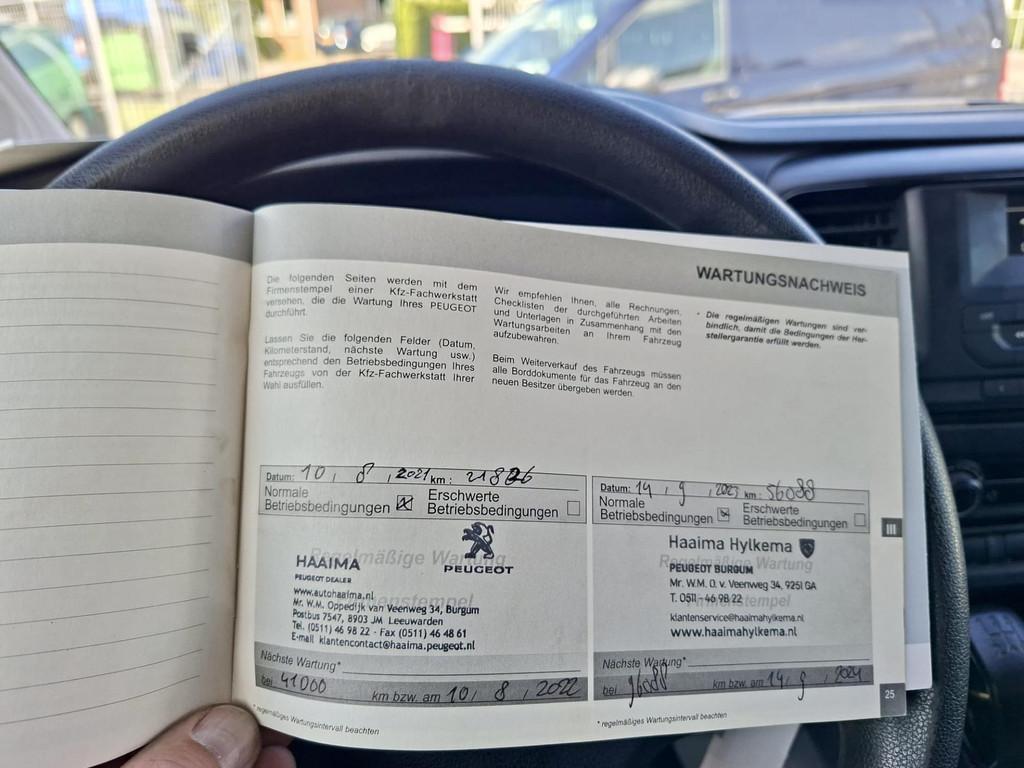 WARTUNGSNACHWEIS
Die folgenden Seiten werden mit dem
Firmenstempel einer Kfz-Fachwerkstatt
versehen, die die Wartung Ihres PEUGEOT
durchführt.
Lassen Sie die folgenden Felder (Datum,
Kilometerstand, nächste Wartung usw.)
entsprechend den Betriebsbedingungen Ihres
Fahrzeugs von der Kfz-Fachwerkstatt Ihrer
Wahl ausfüllen.
Wir empfehlen Ihnen, alle Rechnungen,
Checklisten der durchgeführten Arbeiten
und Unterlagen in Zusammenhang mit den
Wartungsarbeiten an Ihrem Fahrzeug
aufzubewahren.
Beim Weiterverkauf des Fahrzeugs müssen
alle Borddokumente für das Fahrzeug an den
neuen Besitzer übergeben werden.
* Die regelmäßigen Wartungen sind ver-
bindlich, damit die Bedingungen der Her-
stellergarantie erfüllt werden.
Datum: 10, 8, 2021 km:
Normale
Betriebsbedingungen
Erschwerte
Betriebsbedingungen
Regelmäßige Wartung
HAAIMA
PEUGEOT DEALER
PEUGEOT
www.autohaaima.nl
Firmenstempel
Mr. W.M. Oppedijk van Veenweg 34, Burgum
Postbus 7547, 8903 JM Leeuwarden
Tel. (0511) 46 98 22 - Fax (0511) 46 48 61
E-mail klantencontact@haaima.peugeot.nl
Nächste Wartung*
bei 41000 km bzw. am 10, 8, 2022
* regelmäßiges Wartungsintervall beachten
Datum: 14, 9, 2023 km: 56088
Normale
Betriebsbedingungen
Erschwerte
Betriebsbedingungen
Haaima Hylkema
Regelmäßige Wartung
PEUGEOT BURGUM
Mr. W.M. O. v. Veenweg 34, 9251 GA
T. 0511 - 46 98 22
Firmenstempel
klantenservice@haaimahylkema.nl
www.haaimahylkema.nl
Nächste Wartung*
bei 96088 km bzw. am 14, 9, 2024
* regelmäßiges Wartungsintervall beachten
III
25